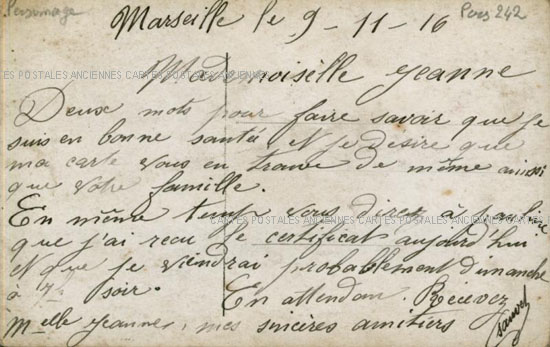 Personnage
Pers 242
Marseille le 9-11-16
Mademoiselle Jeanne
CARTES POSTALES ANCIENNES CARTES POSTALES ANCIENNES CARTES POSTALES ANCIENNES
Deux mots pour faire savoir que je
suis en bonne santé, et je désire que
ma carte vous en trouve de même ainsi
que votre famille.
En même temps vous direz à
CARTES POSTALES ANCIENNES CARTES POSTALES ANCIENNES CARTES POSTALES ANCIENNES
que j'ai reçu le certificat aujourd'hui
et que je viendrai probablement dimanche
à soir. En attendan Recevez
Melle Jeanne, mes sincères amitiers